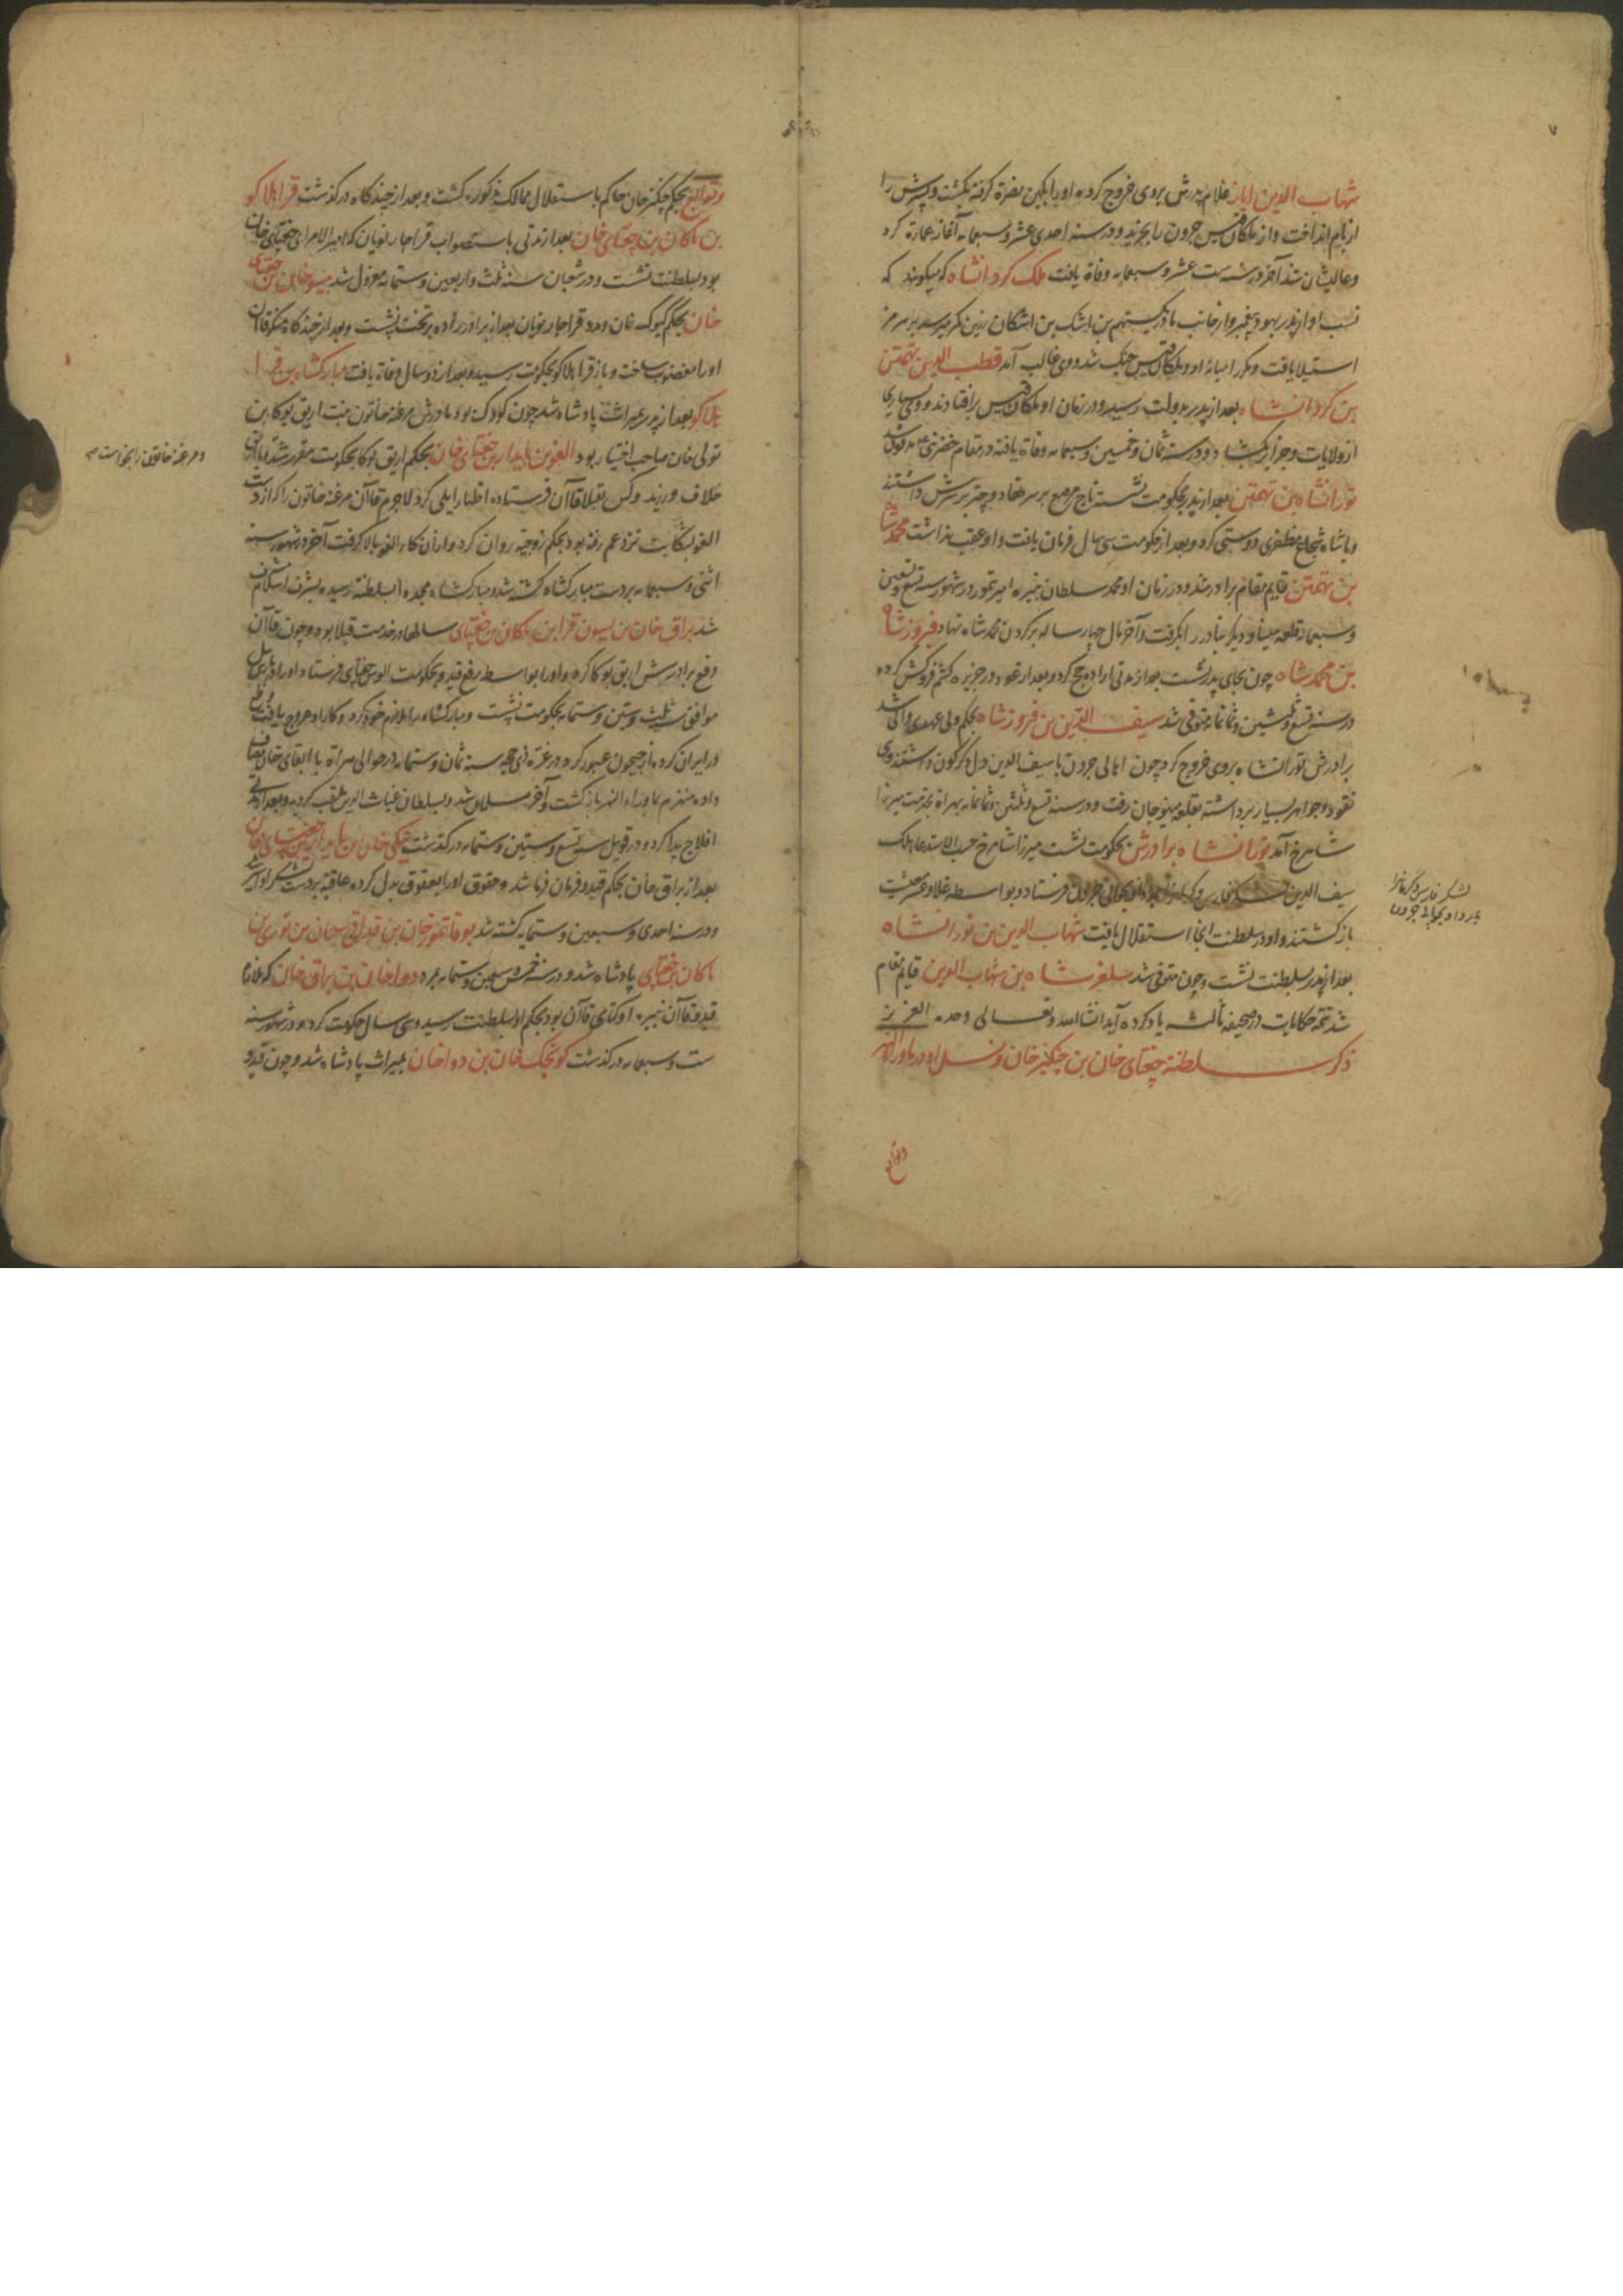 ۷
شهاب الدین ایاز غلام پدرش بروی خروج کرده او را بکین نضرة کرفته بکشت و پسرش را
از بام انداخت و از ملکان قیس جرون را بخرید و در سنه احدی عشر و سبعمایه آغاز عمارة کرد
و عالیشان شد آخر در سنه ست عشر و سبعمایه وفاة یافت ملک کردانشاه که میکویند که
نسب او از پدر بهود پیغمبر و از جانب مادر
استیلا یافت و مکرر میانه او و ملکان قیس جنک شد و وی غالب آمد قطب الدین تهمتن
بن کردانشاه بعد از پدر بدولت رسید و در زمان او ملکان قیس برافتادند و وی بسیاری
از ولایات و جزایر بکشاد و در سنه ثمان و خمسین و سبعمایه وفاة یافته در مقام مدفون شد
تورانشاه بن تهمتن بعد از پدر بحکومت نشسته تاج مرصع بر سر نهاد و چتر بر سرش داشتند
و با شاه شجاع مظفری دوستی کرد و بعد از حکومت سی سال فرمان یافت و او عقب نداشت محمد شاه
بن تهمتن قایم مقام برادر شد و در زمان او محمد سلطان نبیره امیر تیمور در شهور سنه تسع و تسعین
و سبعمایه قلعه مینا و دیکر بنادر را بکرفت و آخر مال چهار ساله بر کردن محمد شاه نهاد فیروزشاه
بن محمد شاه چون بجای پدر نشست بعد از مدتی اراده حج کرد و بعد از عود در جزیره کشم فروکش کرده
در سنه تسع و ثلثین و ثمانمایه متوفی شد سیف الدین بن فیروزشاه بحکم ولی عهدی والی شد
برادرش تورانشاه بروی خروج کرد چون اهالی جرون با سیف الدین دل دکرکون داشتند وی
نقود و جواهر بسیار برداشته بقلعه مینوجان رفت و در سنه تسع و ثلثین و ثمانمایه بهراة بخدمت میرزا
شاهرخ آمد تورانشاه برادرش بحکومت نشست میرزا شاهرخ حسب الاستدعا ملک
سیف الدین لشکر فارس و کرمان فرستاد و بواسطه غلا و عسر معیشت
باز کشتند و او در سلطنت آنجا استقلال یافت شهاب الدین بن تورانشاه
بعد از پدر بسلطنت نشست و چون متوفی شد سلغرشاه بن شهاب الدین قایم مقام
شد تتمه حکایات در صحیفه ثالثه یاد کرده آید انشاالله تعالی وحده العزیز
ذکر سلطنة چغتای خان بن چنکیز خان و نسل او در ماوراءالنهر
و توابع
لشکر فارس و کرمان را
بمدد او بحوالی جرون
و توابع بحکم چنکیز خان حاکم باستقلال ممالک مذکوره کشت و بعد از چندکاه درکذشت قرا هلاکو
بن ماکان بن چغتای خان بعد از مدتی باستصواب قراجار نویان که امیر الامرای چغتای خان
بود بسلطنت نشست و در شعبان سنه ثلث و اربعین و ستمایه معزول شد ییسو خان بن چغتای
خان بحکم کیوک خان و مدد قراجار نویان بعد از برادرزاده بر تخت نشست و بعد از چندکاه منکو قاآن
او را مغضوب ساخت و باز قرا هلاکو بحکومت رسید و بعد از دو سال وفاة یافت مبارکشاه بن قرا
هلاکو بعد از پدر بمیراث پادشاه شد چون کودک بود مادرش مرغنه خاتون بنت اریق بوکا بن
تولی خان صاحب اختیار بود الغو بن بایدار بن چغتای خان بحکم اریق بوکا بحکومت مقرر شد و با اریق
خلاف ورزید و کس بقبلا قاآن فرستاده اظهار ایلی کرد لاجرم قاآن مرغنه خاتون را که از دست
الغو بشکایت نزد عم رفته بود بحکم زوجیة روان کرد و از آن کار الغو بالا کرفت آخر در شهور سنه
اثنی و سبعمایه بر دست مبارکشاه کشته شد و مبارکشاه مجددا بسلطنة رسیده بشرف اسلام مشرف
شد براق خان بن ییسون قرا بن ماکان بن چغتای سالها در خدمت قبلا بود و چون قاآن
دفع برادرش اریق بوکا کرد او را بواسطه رفع قیدو بحکومت الوس چغتای فرستاد و او را
موافق سنه ثلث و ستین و ستمایه بحکومت نشست و مبارکشاه را ملازم خود کرد و کار او عروج یافت طمع
در ایران کرده از جیحون عبور کرد و در غره ذی حجه سنه ثمان و ستمایه در حوالی هراة با ابقای خان مصاف
داده منهزم بماوراء النهر باز کشت و آخر مسلمان شد و بسلطان غیاث الدین ملقب کردید و بعد از مدتی
افلاج پیدا کرد و در قویل سنه تسع و ستین و ستمایه درکذشت نیکی خان بن بایدار بن چغتای خان
بعد از براق خان بحکم قیدو فرمان فرما شد و حقوق او را بعقوق بدل کرده عاقبة بر دست لشکر او اسیر شد
و در سنه احدی و سبعین و ستمایه کشته شد بوقا تیمور خان بن قداقی سجان بن توری بن
ماکان بن چغتای پادشاه شد و در سنه خمس و سبعین و ستمایه بمرد دوا خان بن براق خان که ملازم
قیدو قاآن نبیره اوکتای قاآن بود بحکم او بسلطنت رسید و سی سال حکومت کرد و در شهور سنه
ست و سبعمایه درکذشت کونجک خان بن دوا خان بمیراث پادشاه شد و چون قیدو
و مرغنه خاتون را بخواست